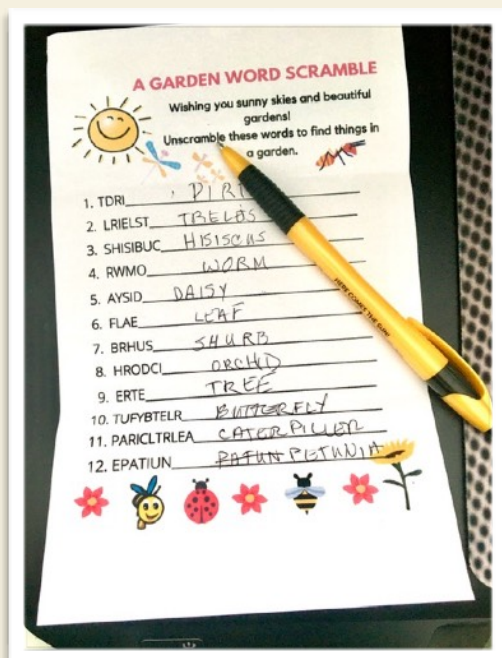 A GARDEN WORD SCRAMBLE
Wishing you sunny skies and beautiful
gardens!
Unscramble these words to find things in
a garden.
1. TDRI DIRT
2. LRIELST TRELOS
3. SHISIBUC HISISCUS
4. RWMO WORM
5. AYSID DAISY
6. FLAE LEAF
7. BRHUS SHURB
8. HRODCI ORCHID
9. ERTE TREE
10. TUFYBTELR BUTTERFLY
11. PARICLTRLEA CATERPILLER
12. EPATIUN PATUN PETUNIA
HERE COMES THE SUN